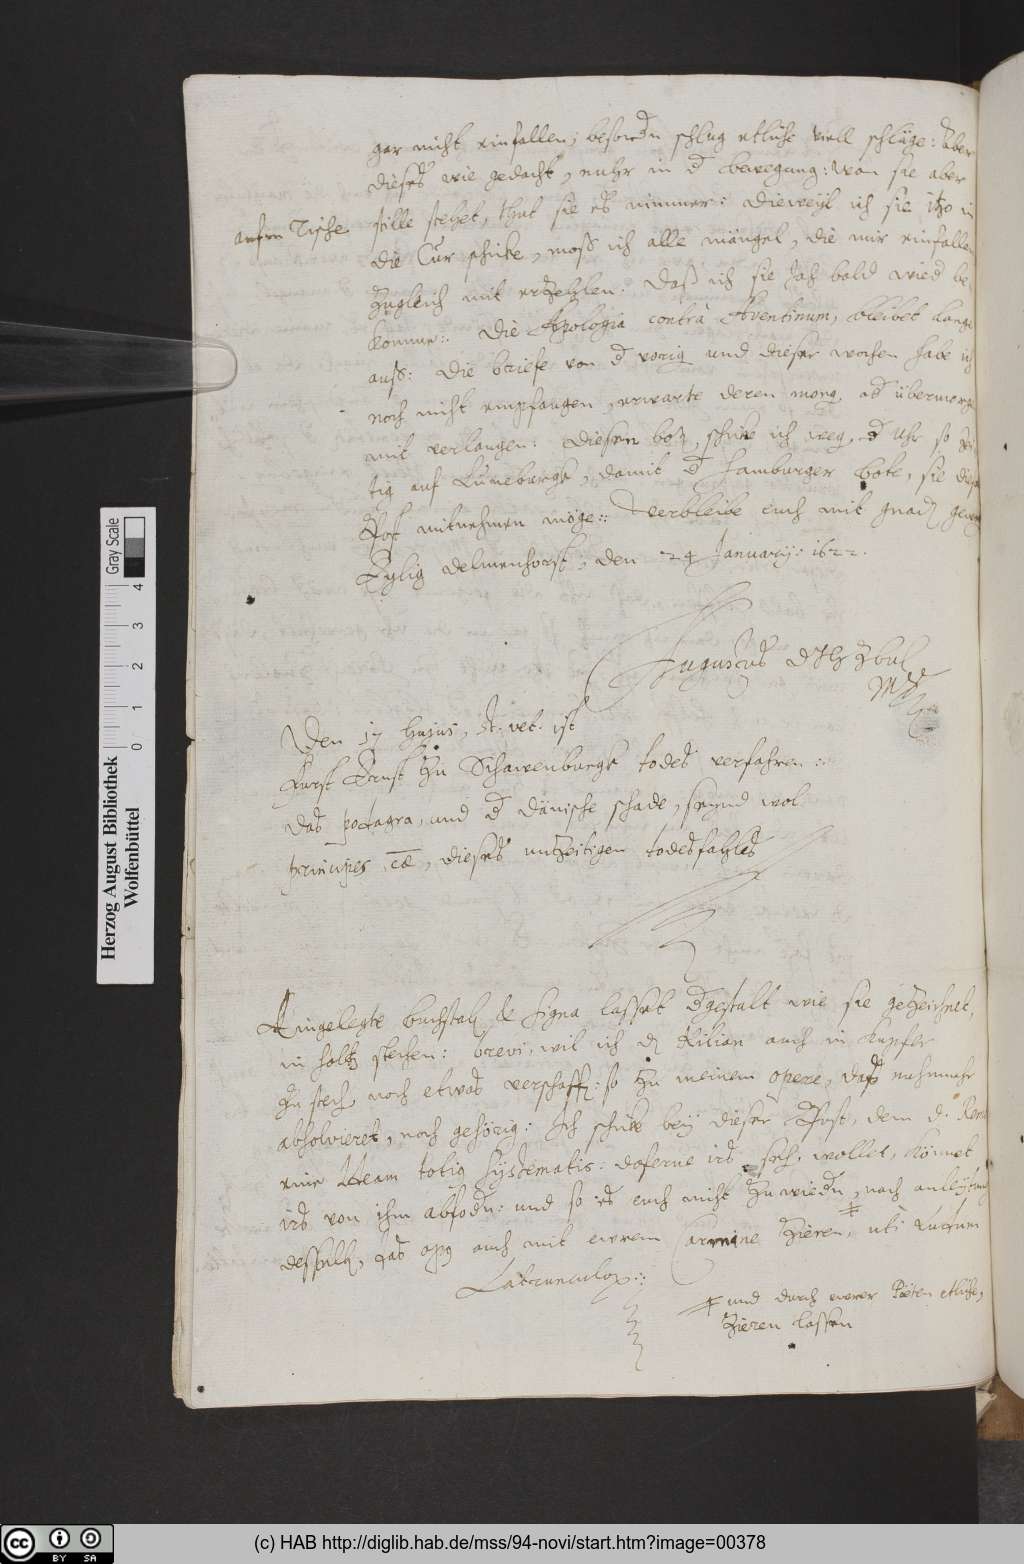 gar nicht einfallen; besondern schlug etliche viell schläge: Aber
dieses wie gedacht, nuhr in d bewegung: Wan sie aber
aufm Tische
stille stehet, thut sie es nimmer: Dieweyl ich sie itzo in
die Cur schicke, muß ich alle mängel, die mir einfallen
zugleich mit erzehlen: Daß ich sie Jah bald wied be-
komme: Die Apologia contra Aventinum, bleibet lange
auß: Die briefe von d vorig und dieser wochen habe ich
noch nicht empfangen, erwarte deren morg, od übermorgen
mit verlangen: Diesen bot, schicke ich weg, d Uhr so
tig auf Lüneburgk, damit d Hamburger bote, sie diese
Post mitnehmen möge: Verbleibe euch mit gnad gewog
Eylig Delmenhorst, den 24 January: 1622.
Augustus
Den 17 hujus, St. vet. ist
Fürst Ernst zu Schawenburgk todes verfahren:
das podagra, und d Dänische schade, seynd wol
principes, dieses unzeitigen todesfahles
Eingelegte buchstab & signa lasset dgestalt wie sie gezeichnet,
in holtz stechen: brevi, wil ich d Kilian auch in Kupfer
zu stech, noch etwas verschaff: so zu meinem opere, das nuhnmehr
absolvieret, noch gehörig: Ich schicke bey dieser Post, dem d.
eine Ideam totius Systematis: daferne irs seh, wollet, könnet
irs von ihm abfodn: und so es euch nicht zuwiedn, nach anleytung
desselb, das opus auch mit ewrem Carmine zieren, uti Lusum
Latrunculor:
# und durch ewrer Poëten etliche,
zieren lassen
Herzog August Bibliothek
Wolfenbüttel
0 1 2 3 4
Gray Scale
cc BY SA
(c) HAB http://diglib.hab.de/mss/94-novi/start.htm?image=00378